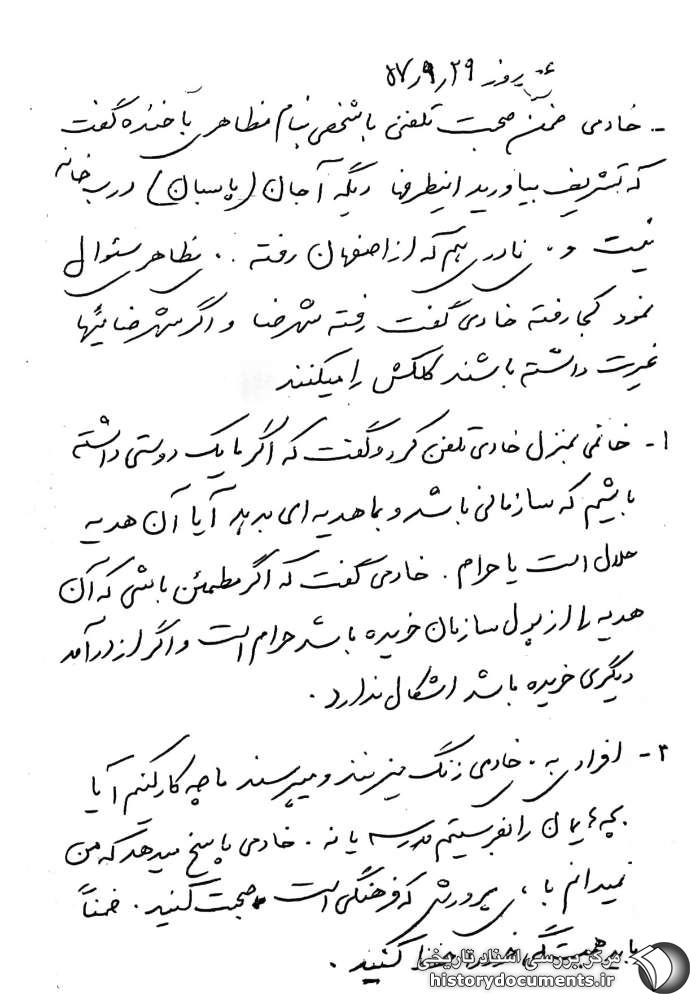 روز ۵۷٫۹٫۲۹
- خادمی ضمن صحبت تلفنی با شخصی بنام مظاهری با خنده گفت
که تشریف بیاورید اینطرفها دیگه آجان (پاسبان) درب خانه
نیست و نادری هم که از اصفهان رفته . . مظاهری سئوال
نمود کجا رفته خادمی گفت رفته شهرضا و اگر شهرضائیها
غیرت داشته باشند کلکش را میکنند
۱- خانمی بمنزل خادمی تلفن کرد و گفت که اگر ما یک دوستی داشته
باشیم که سازمانی باشد و بما هدیه ای بدهد آیا آن هدیه
حلال است یا حرام . خادمی گفت که اگر مطمئن باشی که آن
هدیه را از پول سازمان خریده باشد حرام است و اگر از درآمد
دیگری خریده باشد اشکال ندارد .
۲- افرادی به خادمی زنگ میزنند و میپرسند ما چه کار کنیم آیا
بچه هایمان را بفرستیم مدرسه یا نه . خادمی پاسخ میدهد که من
نمیدانم با پرورش که فرهنگی است صحبت کنید . ضمناً
باید همبستگی خود را حفظ کنید .
مرکز بررسی اسناد تاریخی
historydocuments.ir